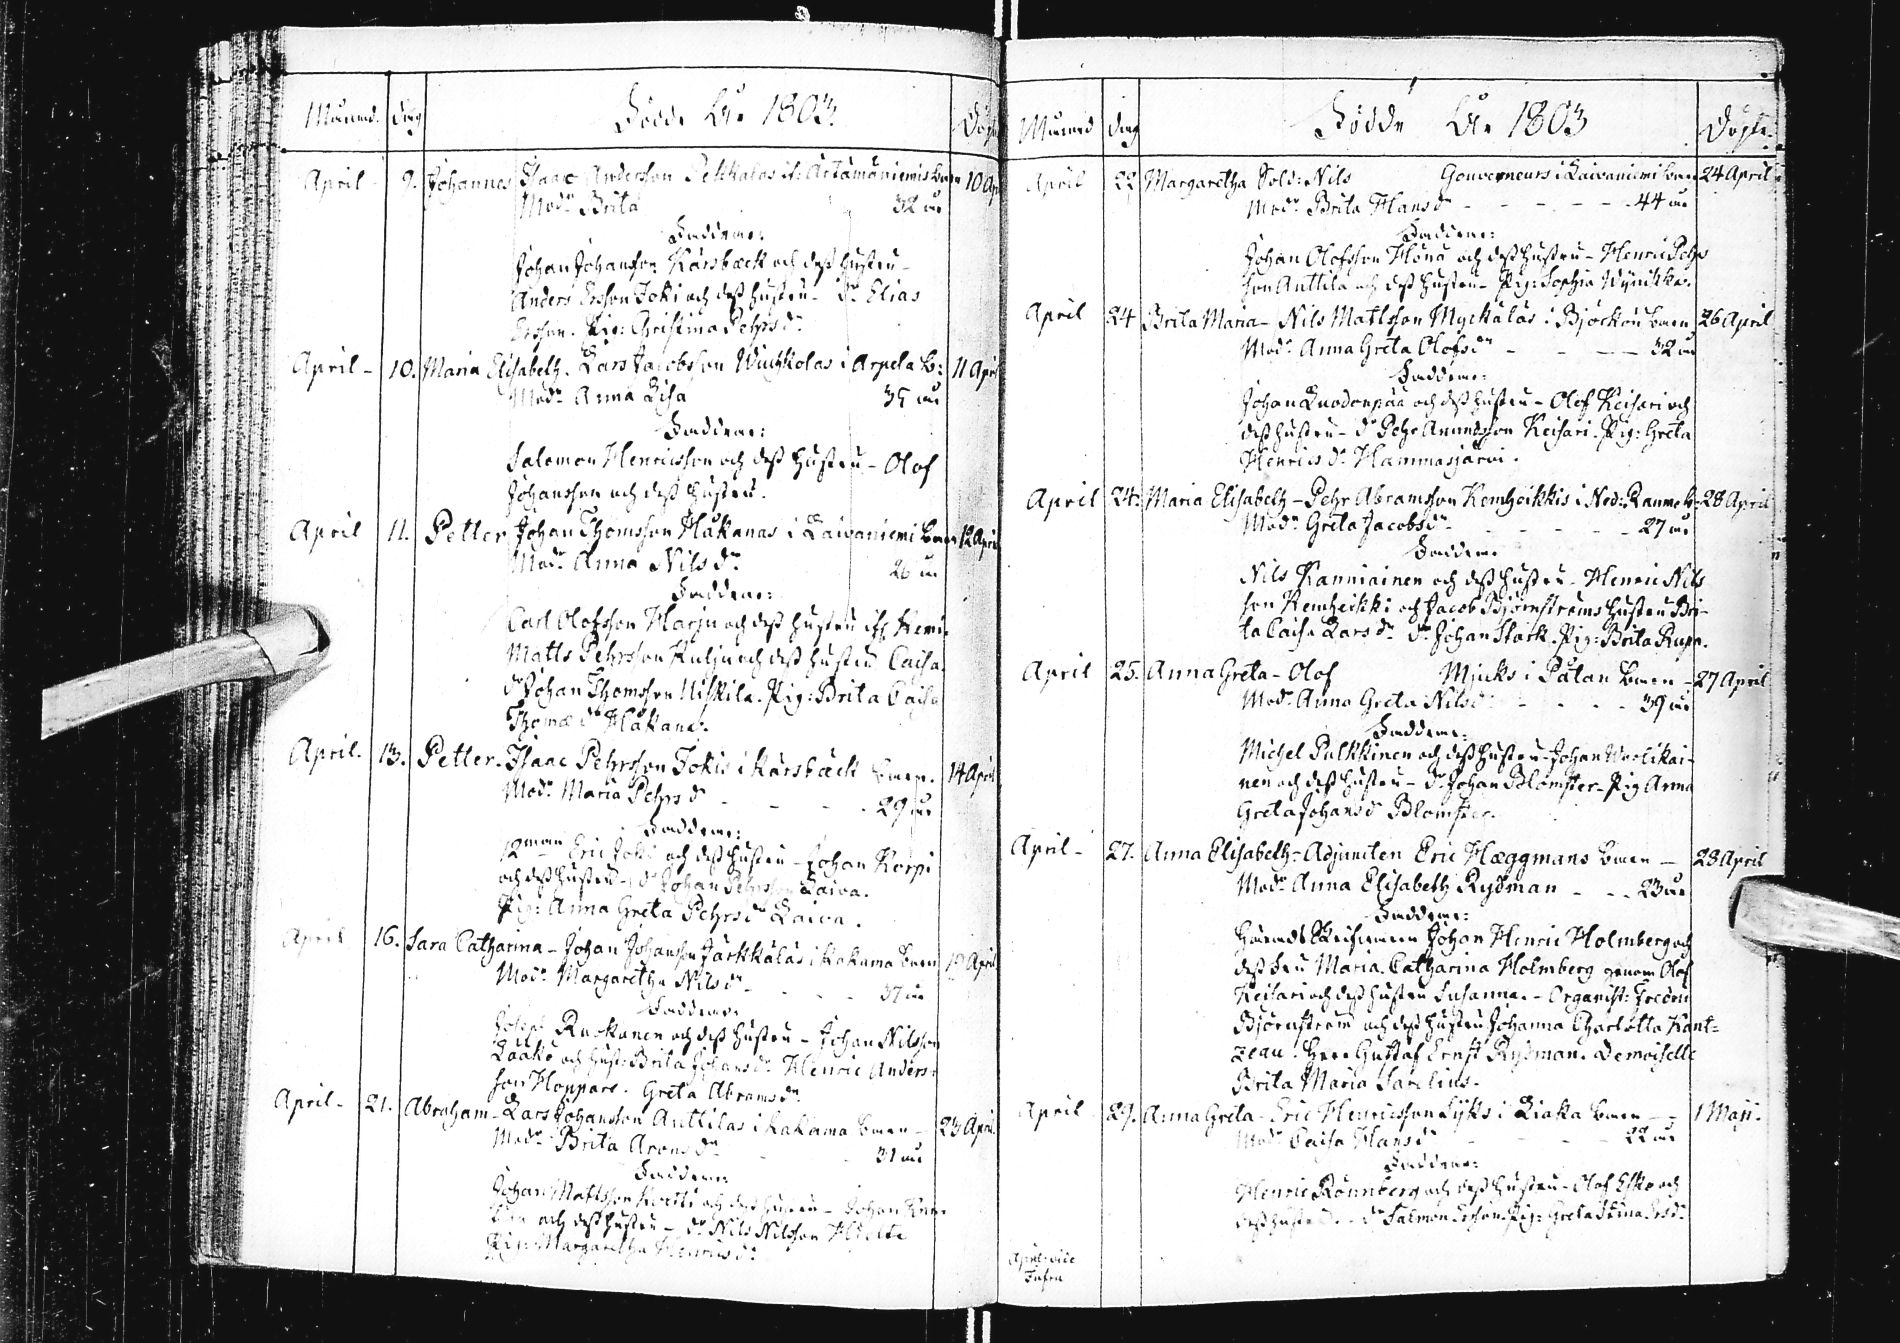 Månad. dag Födde År 1803. Döpte
April 9. Johannes Isaac Andersson Pekkalas if: barn 10 Ap
Modr Brita 32 år
Faddrar:
Johan Johansson Karsbæck och dess hustru
Anders Ersson Joki och dess hustru - Dr Elias
Ersson. Pig: Christina Pehrsdr
April - 10. Maria Elisabeth. Lars Jacobsson i Arpela b: 11 Apri
Modr Anna Lisa 35 år
Faddrar:
Salomon Henricsson och dess hustru - Olof
Johansson och dess hustru.
April 11. Petter Johan Thomsson Håkanas i Laivaniemi barn 12 Apri
Modr Anna Nilsdr 26 år
Faddrar:
Carl Olofsson Harju och dess hustru
Matts Pehrsson Kulju och dess hustru Caisa.
dr Johan Thomsson Uiskila. Pig: Brita Caisa
Thomædr Håkana.
April. 13. Petter. Isaac Pehrsson Jokis i Karsbæck barn. 14 April
Modr Maria Pehrsdr - - - 29 år
Faddrar:
12man Eric Joki och dess hustru - Johan Korpi
och dess hustru - dr Johan Pehrsson Laiva.
Pig: Anna Greta Pehrsdr Laiva.
April 16. Sara Catharina - Johan Johansson Jarkkalas i Kakama barn April
Modr Margaretha Nilsdr - - - 37 år
Faddrar:
Ruokanen och dess hustru - Johan Nilsson
Laako och hust: Brita Johansdr Henric Anders-
son Hoppari. Greta Abramsdr
April - 21. Abraham - Lars Johansson Anttilas i Kakama barn - 23 April
Modr Brita Aronsdr 31 år
Faddrar:
Johan Mattsson och dess hustru - Johan
och dess hustru - dr Nils Nilsson
Pig: Margaretha Henricsdr
Månad dag Födde År 1803 Döpte
April 22 Margaretha Sold: Nils Gouverneurs i Laivaniemi barn 24 April
Modr Brita Hansdr - - - - 44 år
Faddrar:
Johan Olofsson och dess hustru - Henric Pehrs
son Anttila och dess hustru - Pig: Sophia Wynikka.
April 24 Brita Maria - Nils Mattsson Myckälas i Björckön barn 26 April
Modr Anna Greta Olofsdr - - - 32 år
Faddrar:
Johan Luodonpää och dess hustru - Olof Keisari och
dess hustru - dr Pehr Anundsson Keisari. Pig: Greta
Henricsdr Hammasjärvi.
April 24. Maria Elisabeth - Pehr Abramsson Kemheikkis i Ned: 28 April
Modr Greta Jacobsdr - - - 27 år
Faddrar
Nils Kanniainen och dess hustru - Henric Nils
son Kemheikki och Jacob Björnströms hustru Bri-
ta Caisa Larsdr dr Johan Stark. Pig: Brita
April 25. Anna Greta - Olof Mjuks i Påtan barn - 27 April
Modr Anna Greta Nilsdr - - - 39 år
Faddrar:
Michel Pulkkinen och dess hustru - Johan Wuolikai-
nen och dess hustru - dr Johan Blomster - Pig Anna
Greta Johansdr Blomster.
April - 27. Anna Elisabeth - Adjuncten Eric Hæggmans barn - 28 April
Modr Anna Elisabeth Rydman - - 23 år
Faddrar:
Johan Henric Holmberg och
dess fru Maria Catharina Holmberg genom Olof
Keisari och dess hustru Susanna. - Organist: Fredric
Björnström och dess hustru Johanna Charlotta Kant=
zeau. Herr Gustaf Ernst Rydman. Demoiselle
Brita Maria Sarelius.
April 29. Anna Greta - Eric Henricsson Lyks i Liaka barn - 1 Maji.
Modr Caisa Hansdr - - - 22 år
Faddrar:
Henric Rönnberg och dess hustru - Olof Esko och
dess hustru. - dr Salmon Ersson. Pig: Greta Stina Ersdr
April vide
Infra